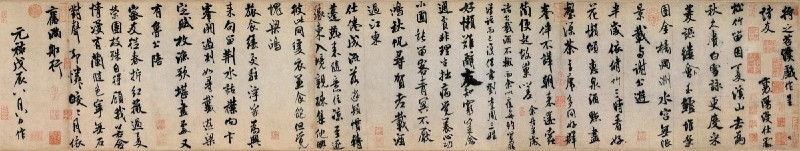 將之苕溪戲作呈
諸友 襄陽漫仕黻
松竹留因夏溪山去為
秋久賡白雪詠更度采
菱謳縷會玉鱸堆案
團金橘滿洲水宮無限
景載與謝公遊
半歲依修竹三時看好
花懶傾惠泉酒點盡
壑源茶主席多同好群
峰伴不譁朝來還蠹
簡便起故巢嗟 余居半歲諸公
載酒不輟而余以疾每約置膳
清話而已復借書劉李周三姓
好懶難辭友知窮豈念
通貧非理生拙病覺養心功
小圃能留客青冥不厭
鴻秋帆尋賀老載酒
過江東
仕倦成流落遊頻慣轉
蓬熱來隨意住涼至逐
緣東入境親疎集他鄉
彼此同暖衣兼食飽但覺
愧梁鴻
旅食緣交駐浮家為興
來句留荊水話襟向卞
峰開過剡如尋戴遊梁
定賦枚漁歌堪畫處又
有魯公陪
密友從春拆紅薇過夏
榮團枝殊自得顧我若含
情漫有蘭隨色寧無石
對聲却憐皎皎月依
舊滿船行
元祐戊辰八月八日作